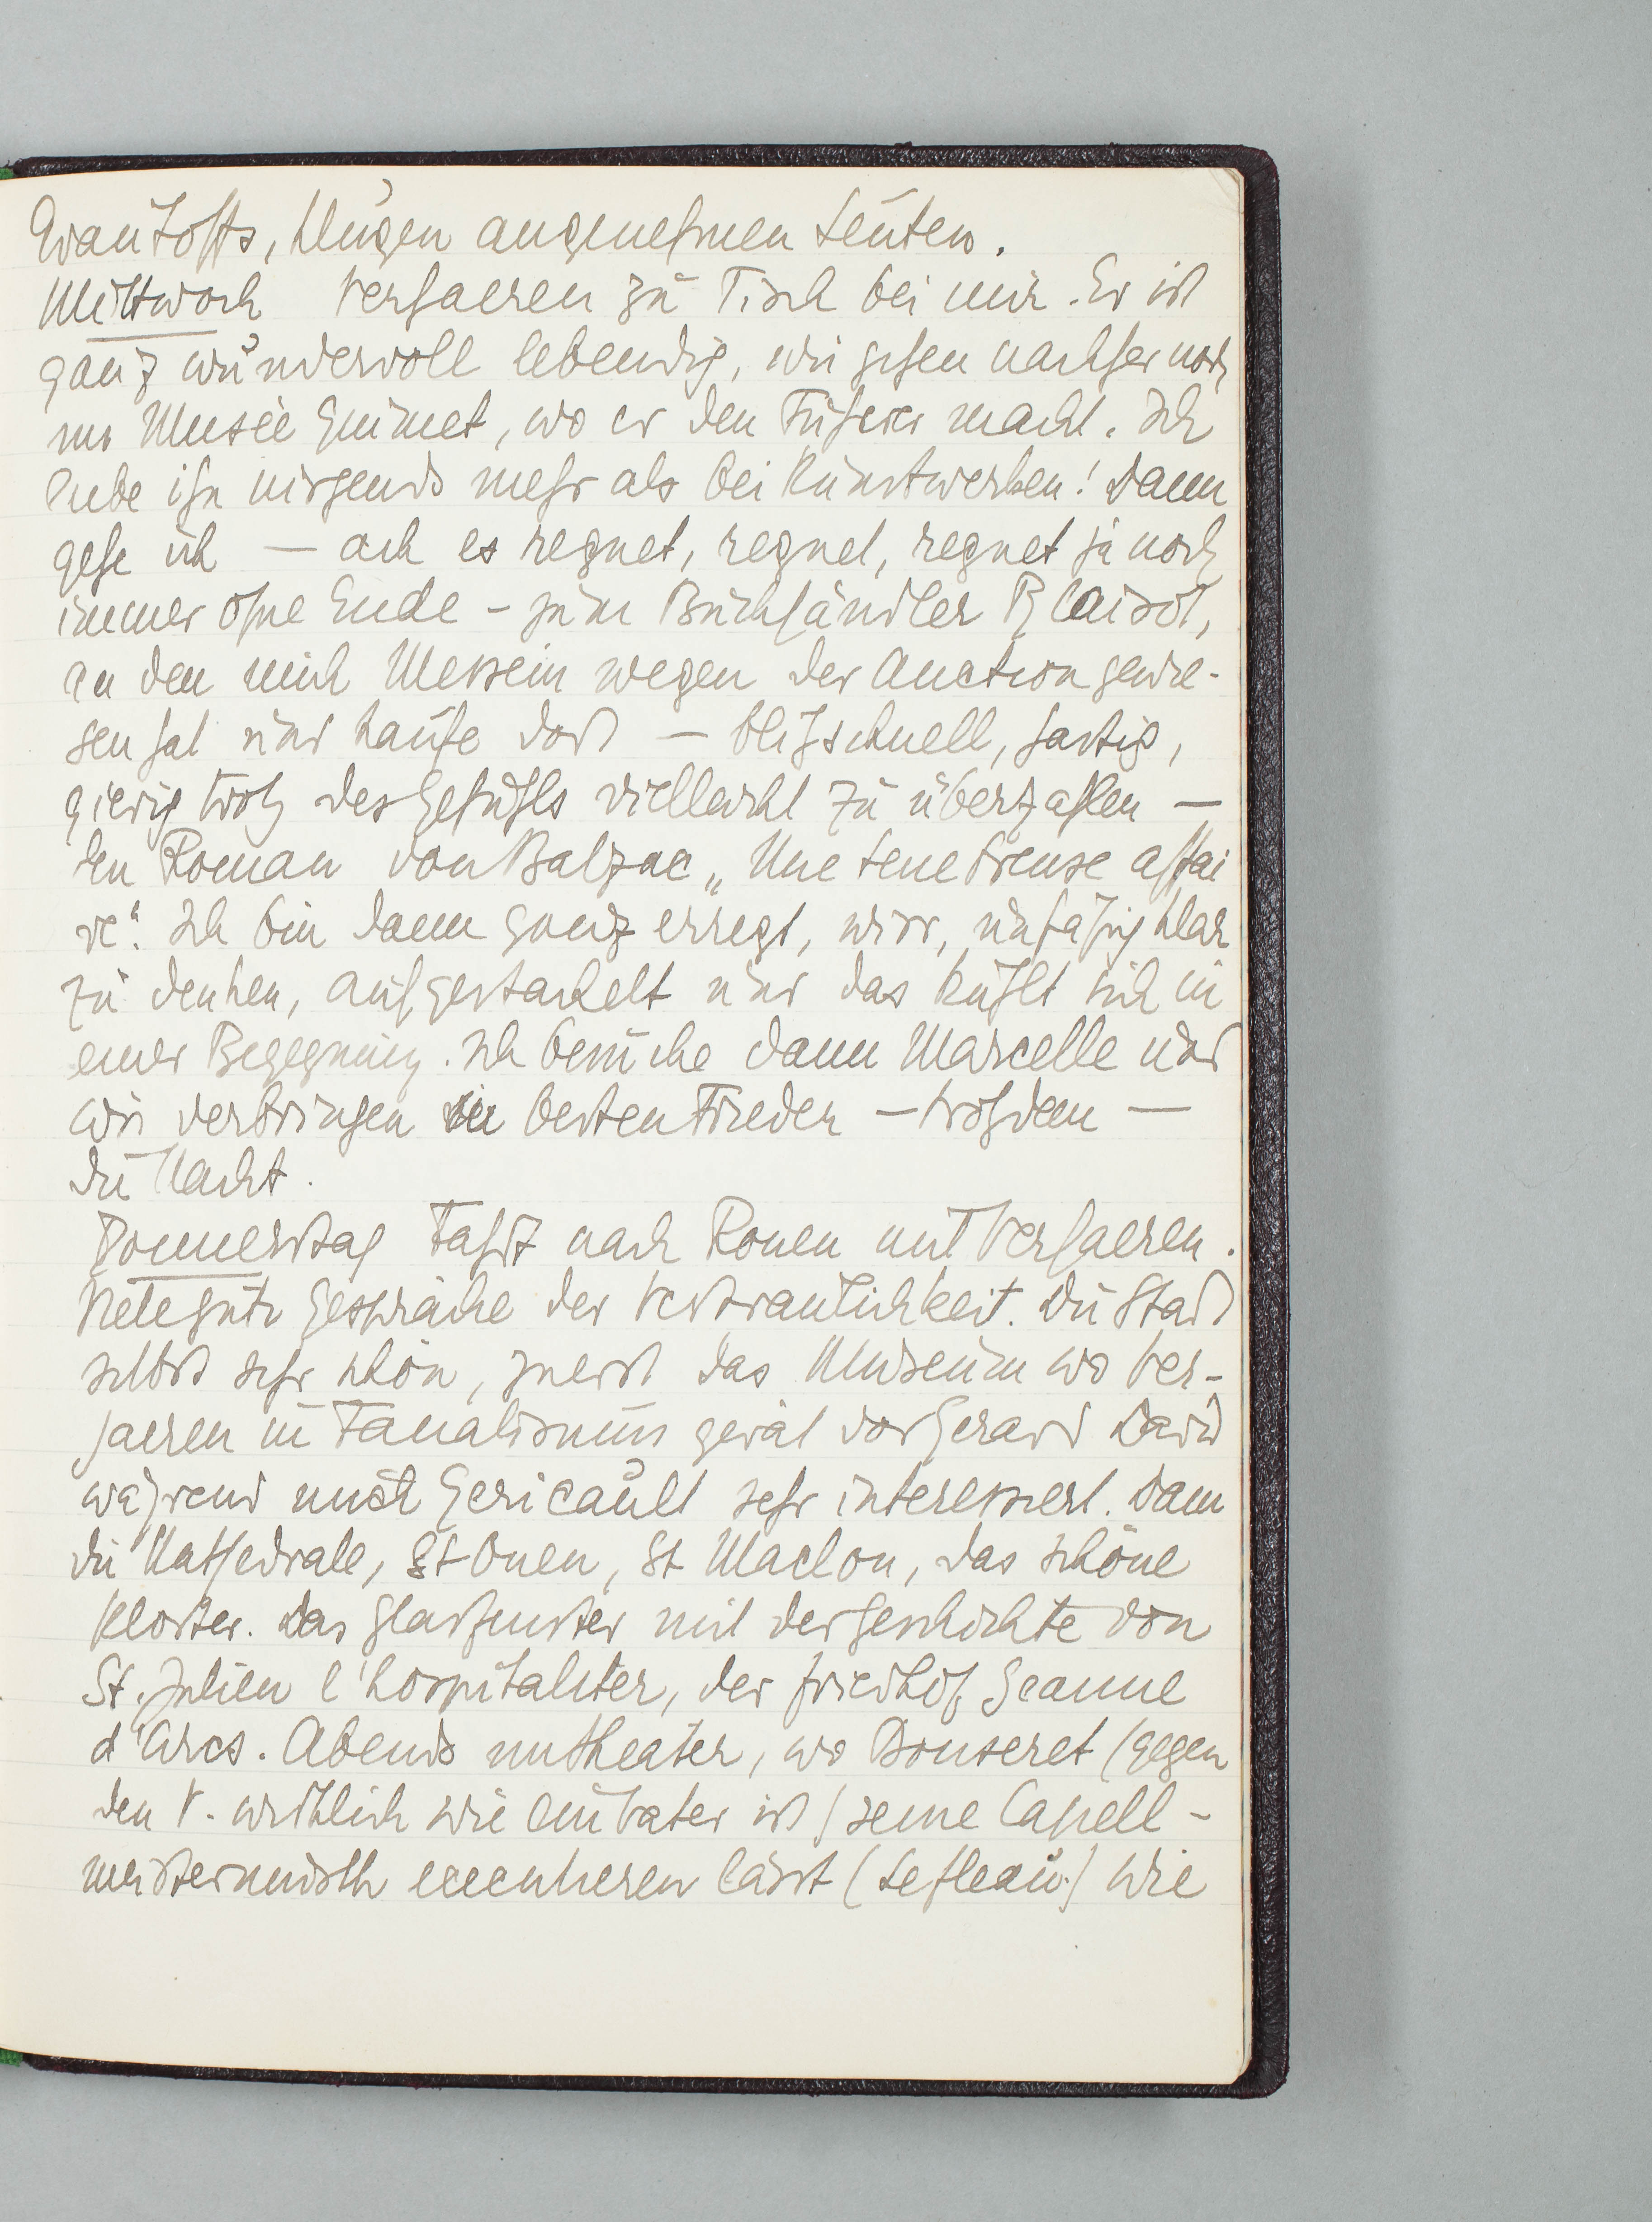 Grautoffs, klugen angenehmen Leuten.
Mittwoch Verhaeren zu Tisch bei mir. Er ist
ganz wundervoll lebendig, wir gehen nachher noch
ins Musée Guimet, wo er den Führer macht. Ich
liebe ihn nirgends mehr als bei Kunstwerken! Dann
gehe ich — ach es regnet, regnet, regnet ja noch
immer ohne Ende – zum Buchhändler Blaizot,
an den mich Messein wegen der Auction gewie-
sen hat und kaufe dort — blitzschnell, hastig,
gierig trotz des Gefühls vielleicht zu überzahlen —
den Roman von Balzac „Une tenebreuse affai
re". Ich bin dann ganz erregt, wirr, unfähig klar
zu denken, aufgestachelt und das kühlt sich in
einer Begegnung. Ich besuche dann Marcelle und
wir verbringen in besten Frieden — trotzdem —
die Nacht.
Donnerstag Fahrt nach Rouen mit Verhaeren.
Viele gute Gespräche der Vertraulichkeit. Die Stadt
selbst sehr schön, zuerst das Museum wo Ver-
haeren in Fanatismus gerät vor Gerard David
während mich Gericault sehr interessiert. Dann
die Kathedrale, St Ouen, St Maclou, das schöne
Kloster. Das Glasfenster mit der Geschichte von
St. Julien l'hospitalier, der Friedhof Jeanne
d'Arcs. Abends im Theater, wo Bouseret (gegen
den V. wirklich wie ein Vater ist) seine Capell-
meistermusik executieren lässt (Lefleau) wie